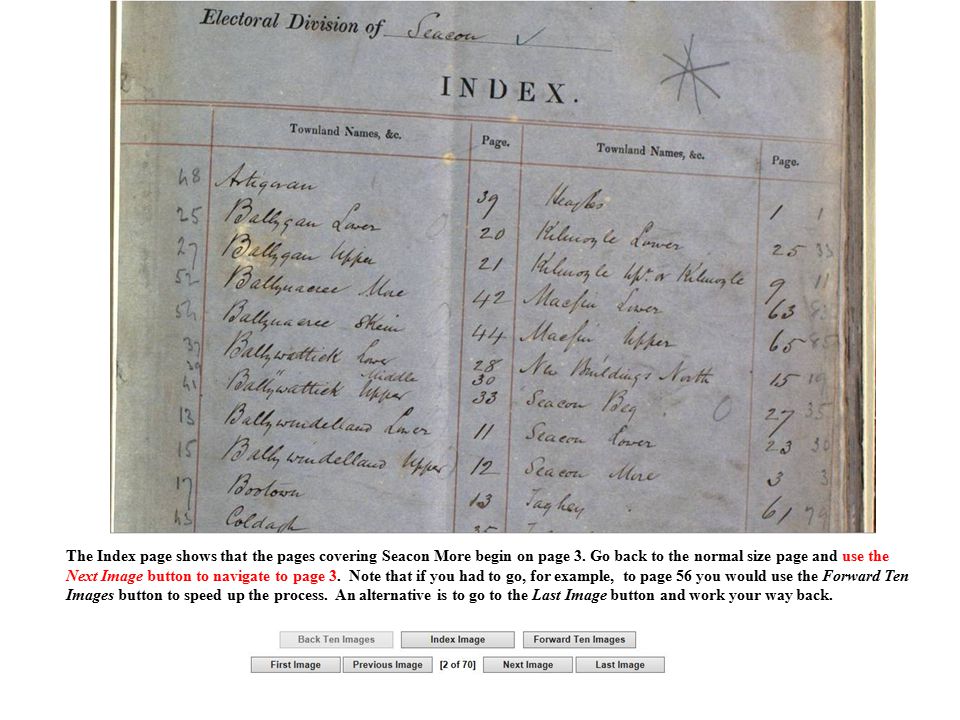 Electoral Division of Seacon ✓
INDEX.
Townland Names, &c. Page. Townland Names, &c. Page.
48 Artigoran 39 Heagles 1 1
25 Ballygan Lower 20 Kilmoyle Lower 25 33
27 Ballygan Upper 21 Kilmoyle Upr. or Kilmoyle 9 11
52 Ballynacree More 42 Macfin Lower 63 83
54 Ballynacree Skein 44 Macfin Upper 65 85
37 Ballywattick Lower 28 New Buildings North 15 19
39 " Middle 30
41 Ballywattick Upper 33 Seacon Beg 27 35
13 Ballywindelland Lower 11 Seacon Lower 23 30
15 Ballywindelland Upper 12 Seacon More 3 3
17 Bootown 13 Taghey 61 79
43 Coldagh 35
The Index page shows that the pages covering Seacon More begin on page 3. Go back to the normal size page and use the
Next Image button to navigate to page 3. Note that if you had to go, for example, to page 56 you would use the Forward Ten
Images button to speed up the process. An alternative is to go to the Last Image button and work your way back.
Back Ten Images Index Image Forward Ten Images
First Image Previous Image [2 of 70] Next Image Last Image